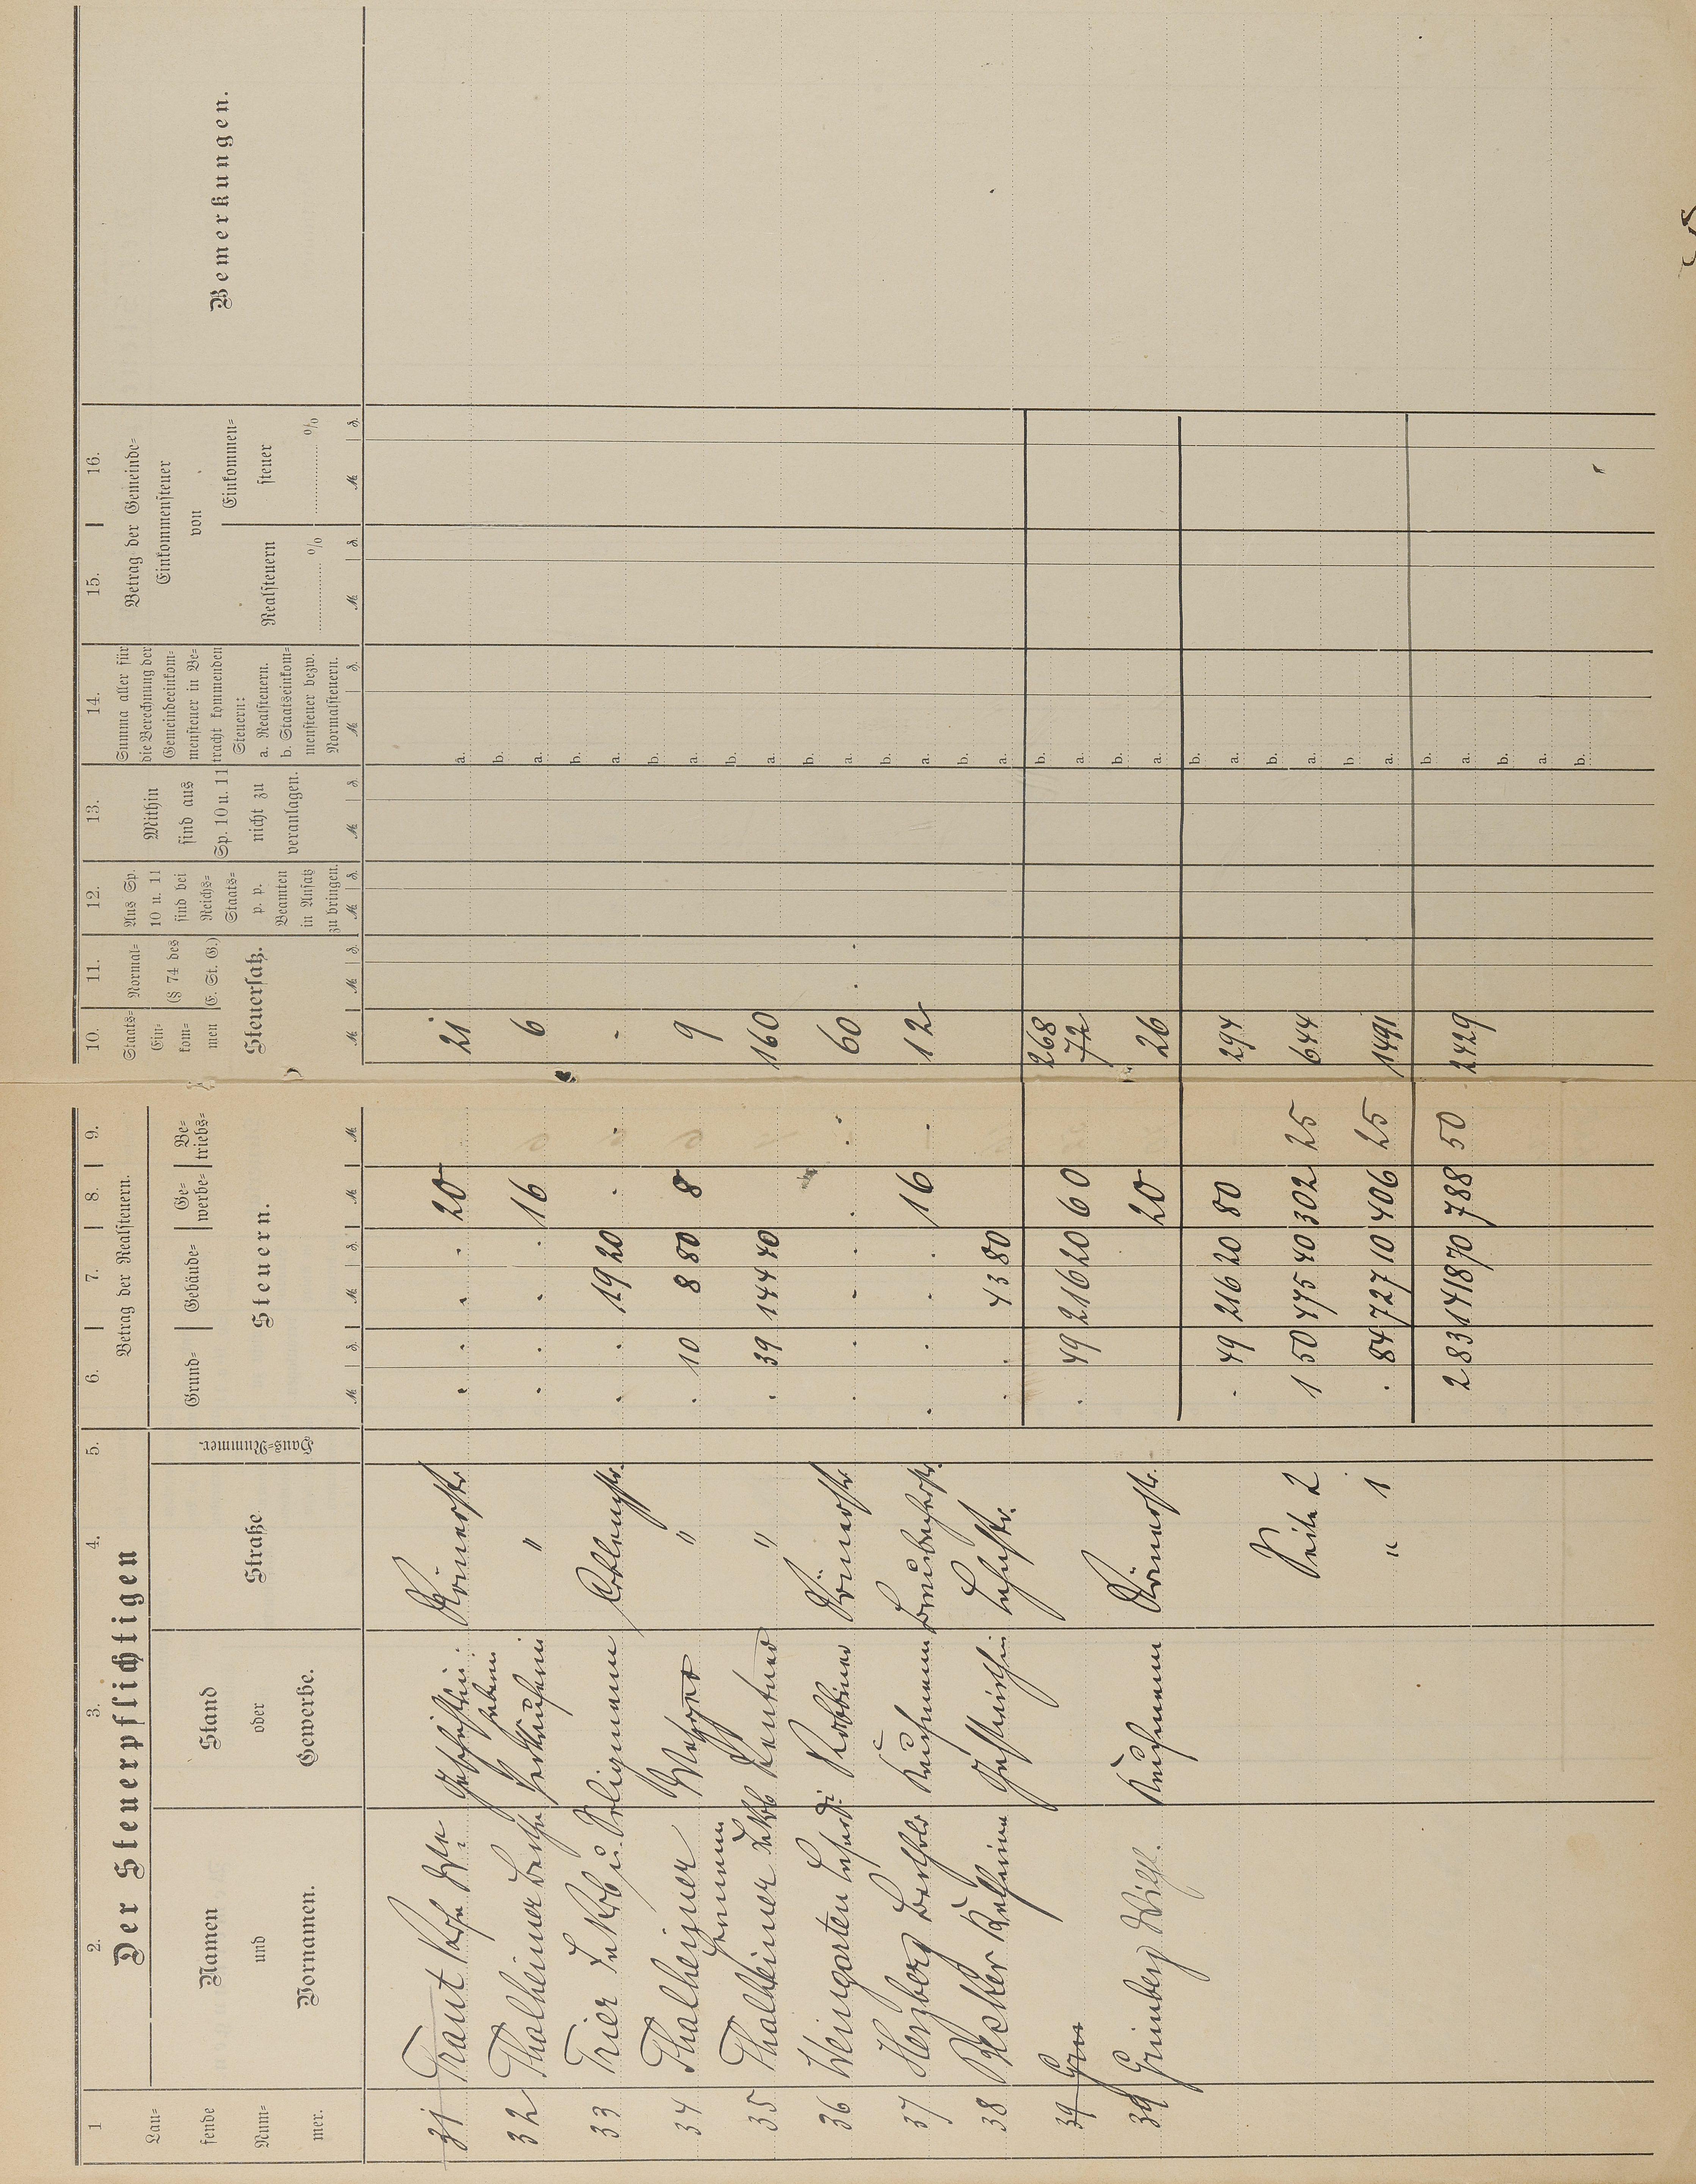 Der Steuerpflichtigen
1
2.
3.
4.
5.
6.
7.
8.
9.
10.
11.
12.
13.
14.
15.
16.
Lau-
fende
Num-
mer.
Namen
und
Vornamen.
Stand
oder
Gewerbe.
Straße
Haus-Nummer.
Betrag der Realsteuern.
Grund-
Gebäude-
Ge-
werbe-
Be-
triebs-
Steuern.
Staats-
Ein-
kom-
men
Normal-
(§ 74 des
E. St. G.)
Steuersatz.
Aus Sp.
10 u. 11
sind bei
Reichs-
Staats-
p. p.
Beamten
in Ansatz
zu bringen.
Mithin
sind aus
Sp. 10 u. 11
nicht zu
veranlagen.
Summa aller für
die Berechnung der
Gemeindeeinkom-
mensteuer in Be-
tracht kommenden
Steuern:
a. Realsteuern.
b. Staatseinkom-
mensteuer bezw.
Normalsteuern.
Betrag der Gemeinde-
Einkommensteuer
von
Realsteuern
%
Einkommen-
steuer
%
Bemerkungen.
31 Traut Römerstr. 20 21
32 Thalheimer Bertha Verkäuferin " 16 6
33 Trier Jakob u. Seligmann Coblenzstr. 19 20
34 Thalheimer Metzger " 10 8 80 8 9
35 Thalheimer Jakob Rentner " 39 144 40 160
36 Weingarten Rabbiner Römerstr. 60
37 Herzberg Berthold Kaufmann 16 12
38 Becker Gastwirthin 43 80
268
39 Grü 49 216 20 60 72
39 Grünberg Wilh. Kaufmann Römerstr. 20 26
49 216 20 80 294
Seite 2 1 50 475 40 302 25 644
" 1 84 727 10 406 25 1491
2 83 1418 70 788 50 2429